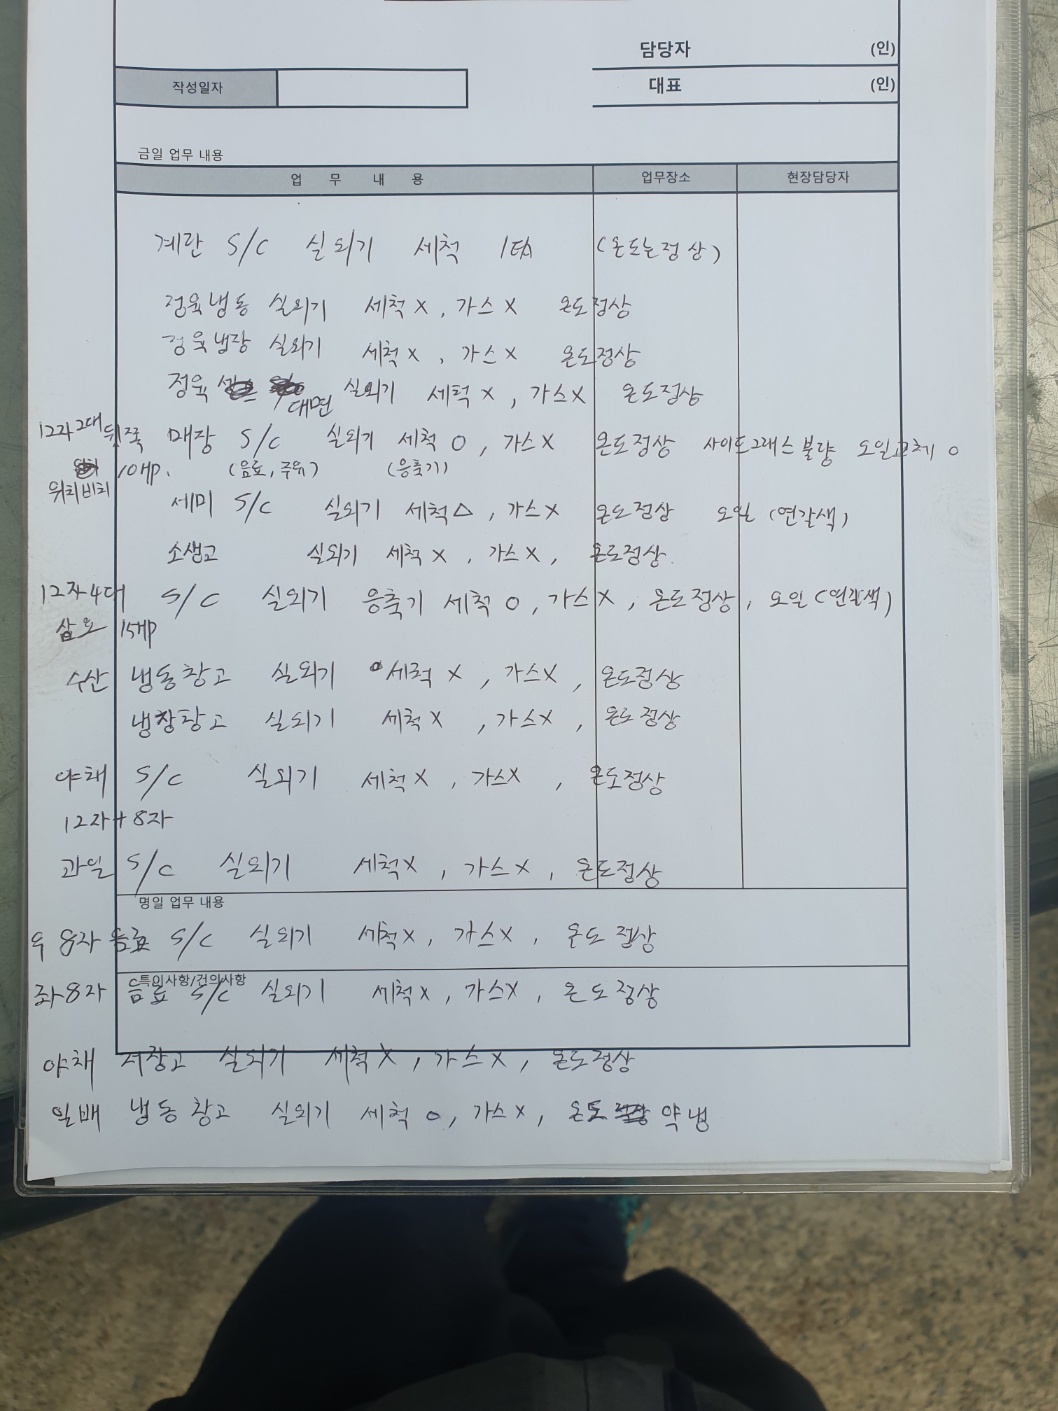 담당자 (인)
작성일자
대표 (인)
금일 업무 내용
업 무 내 용 업무장소 현장담당자
계란 S/C 실외기 세척 1대 (온도는정상)
정육냉동 실외기 세척 X, 가스 X 온도정상
정육냉장 실외기 세척 X, 가스 X 온도정상
정육 대면 실외기 세척 X, 가스X 온도정상
12자2대 뒷쪽 매장 S/C 실외기 세척 O, 가스X 온도정상 사이드그래스 불량 오일교체 O
10HP. (음료, 주류) (응축기)
위치비치
세미 S/C 실외기 세척△, 가스X 온도정상 오일 (연갈색)
소생고 실외기 세척 X, 가스 X, 온도정상.
12자4대 S/C 실외기 응축기 세척 O, 가스X, 온도정상, 오일(연갈색)
삼호 15HP
수산 냉동창고 실외기 세척 X, 가스X, 온도정상
냉장창고 실외기 세척 X, 가스X, 온도정상
야채 S/C 실외기 세척X, 가스X, 온도정상
12자+8자
과일 S/C 실외기 세척X, 가스X, 온도정상
명일 업무 내용
우 8자 음료 S/C 실외기 세척X, 가스X, 온도정상
특이사항/건의사항
좌8자 음료 S/C 실외기 세척X, 가스X, 온도정상
야채 저장고 실외기 세척X, 가스X, 온도정상
일배 냉동창고 실외기 세척 O, 가스X, 온도 약냉